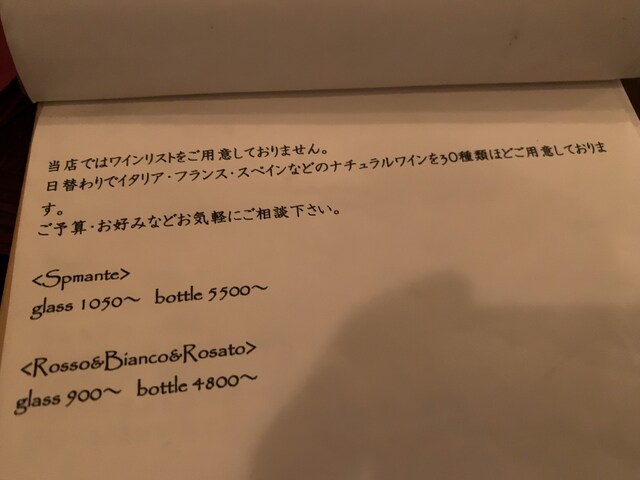 当店ではワインリストをご用意しておりません。
日替わりでイタリア・フランス・スペインなどのナチュラルワインを30種類ほどご用意しておりま
す。
ご予算・お好みなどお気軽にご相談下さい。
<Spmante>
glass 1050～ bottle 5500～
<Rosso&Bianco&Rosato>
glass 900～ bottle 4800～